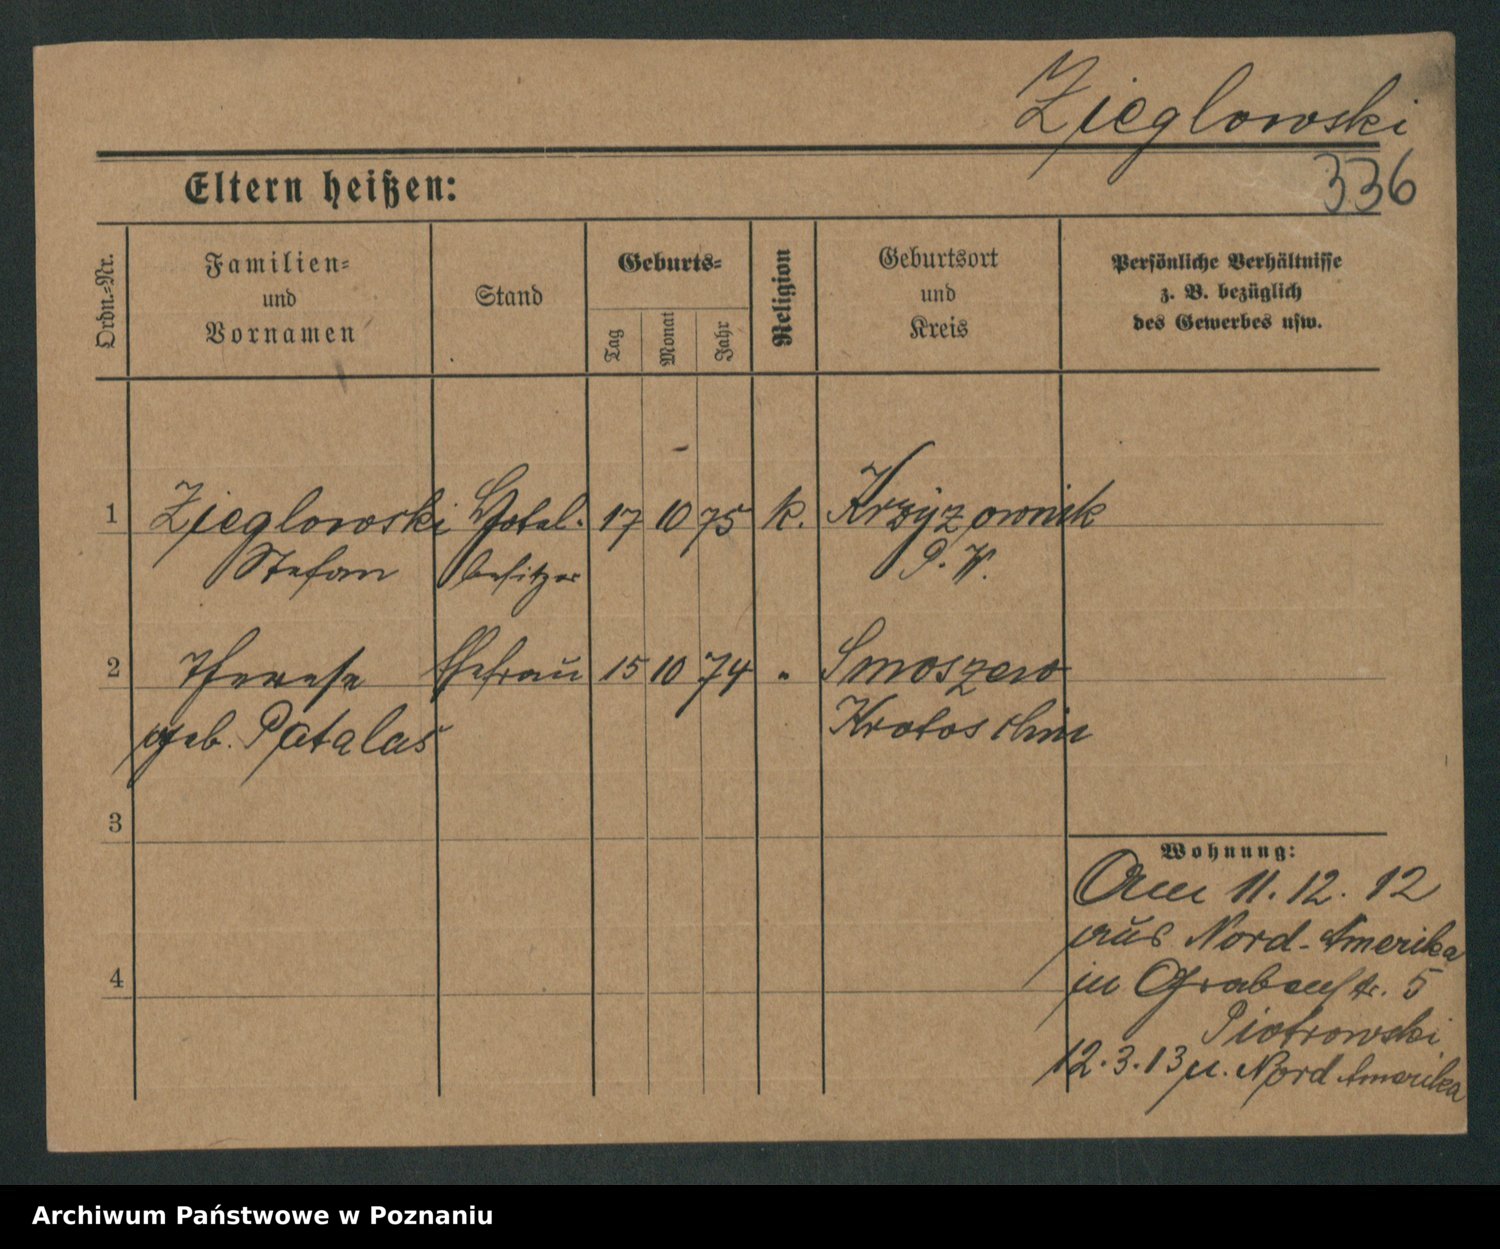 Zieglowski
336
Eltern heißen:
Ordn.-Nr.
Familien-
und
Vornamen
Stand
Geburts-
Tag
Monat
Jahr
Religion
Geburtsort
und
Kreis
Persönliche Verhältnisse
z. B. bezüglich
des Gewerbes usw.
1 Zieglowski Hotel- 17 10 75 k. Krzyzownik
Stefan besitzer P. W.
2 Therese Ehefrau 15 10 74 " Smoszewo
geb. Patalas Krotoschin
3
4
Wohnung:
Am 11. 12. 12
aus Nord-Amerika
in Grabenstr. 5
Piotrowski
12. 3. 13 n. Nord Amerika
Archiwum Państwowe w Poznaniu